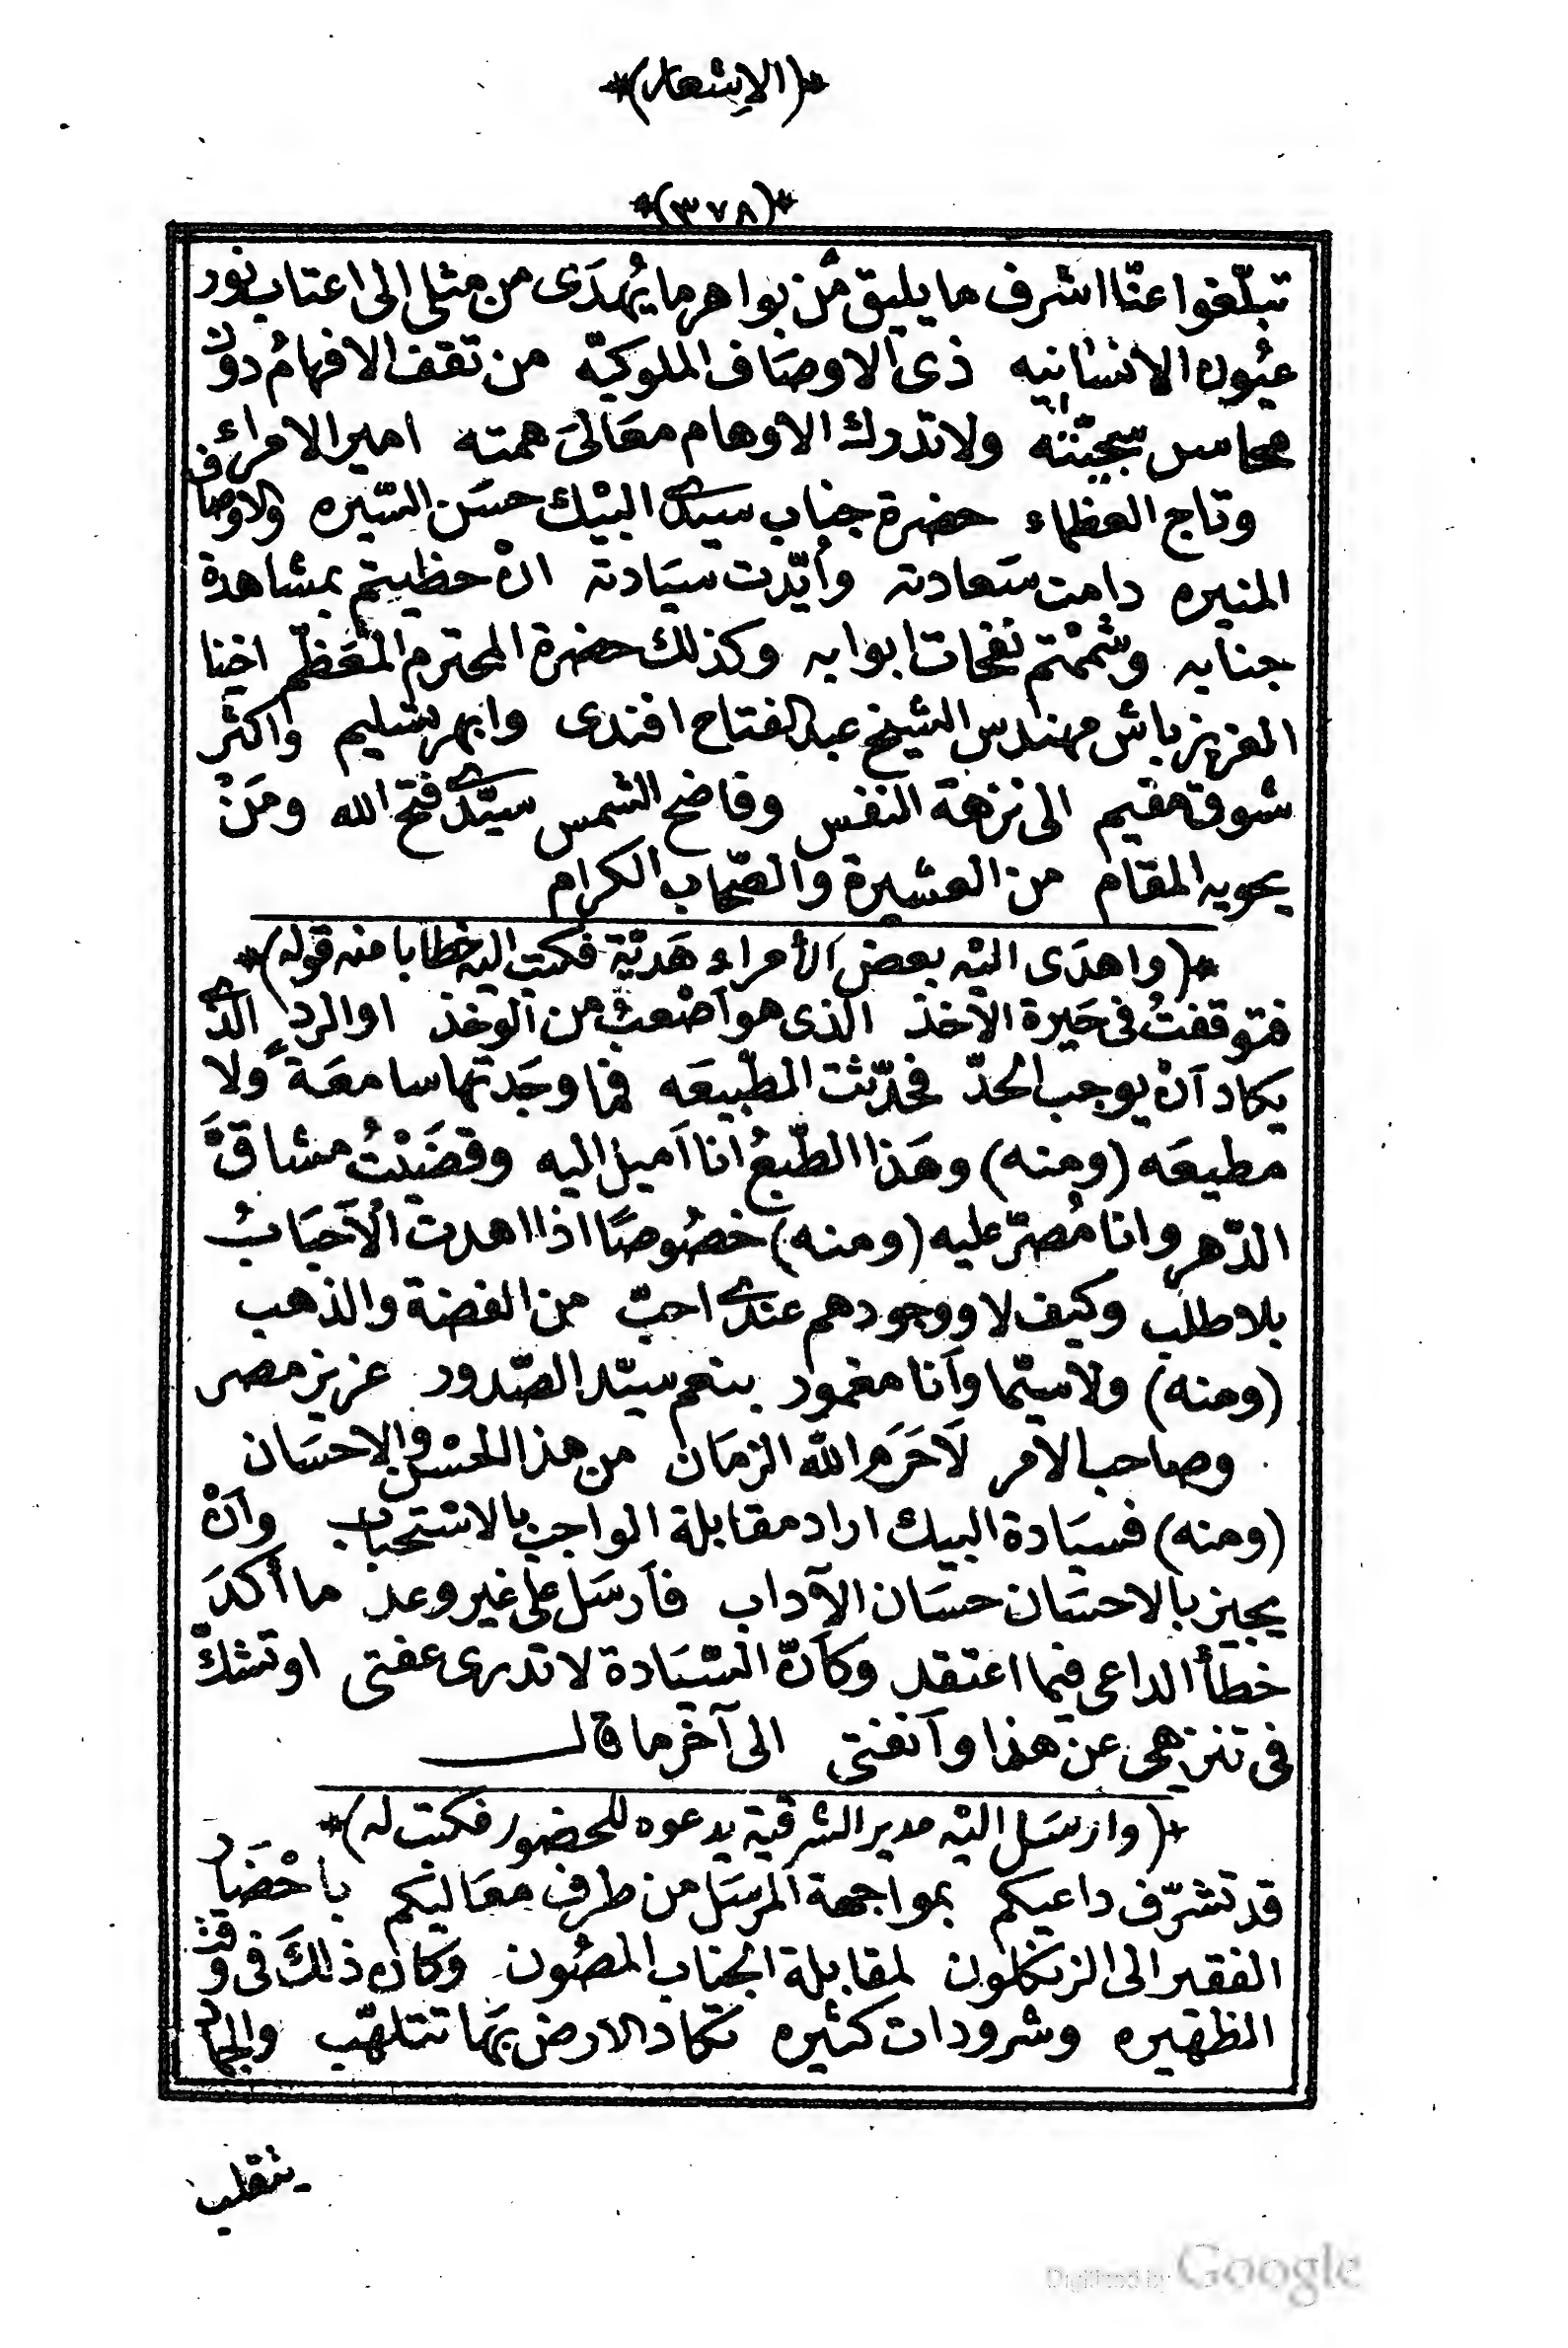 *(الإشعار)*
*(٣٧٨)*
تبلّغوا عنّا اشرف ما يليق مّن بواهر ما يُهدَى من مثلى الى اعتاب نور
عيُون الانسانيه ذى الاوصَاف الملوكيّه من تقف الافهامُ دون
محاسن سجيّته ولا تدرك الاوهام معَالىَ همته امير الامراء
وتاج العظماء حضرة جناب سيدى البيْك حسَن السّيره والاوصاف
المنيره دامت سَعادته وأيّدت سيَادته انْ حظيتم بمشاهدة
جنابه وشممْتم نفحات ابوابه وكذلك حضرة المحترم المُعَظّم اخينا
العزيز باش مهندس الشيخ عبد الفتاح افندى وابهر تسليم واكثر
شوق مقيم الى نزهة النفس وفاضح الشمس سيّدى فتح الله ومَنْ
يحويه المقام من العشيرة والصّحاب الكرام
*(واهدَى اليْه بعض الأمراء هَديّة فكتب اليه خطابا منه قوله)*
فتوقفتُ فى حَيرة الأخذ الذى هو أصْعبُ من الوخذ او الرد الذى
يكاد أنْ يوجب الحدّ فحدّثت الطّبيعَه فما وجَدتها سامعَةً ولا
مطيعَه (ومنه) وهَذا الطّبعُ انا أميل اليه وقضَيْتُ مشاقَّ
الدّهر وانا مُصرّ عليه (ومنه) خصُوصًا اذا اهدت الأحبَابُ
بلا طلب وكيف لا ووجودهم عندى احبّ من الفضة والذهب
(ومنه) ولا سيّما وأنا مغمور بنعم سيّد الصّدور عزيز مصر
وصاحب الأمر لاَ حَرَم الله الزمَان من هذا الحسْن والإحسَان
(ومنه) فسيَادة البيك اراد مقابلة الواجب بالاسْتحبَاب وأنْ
يجيز بالاحسَان حسَان الآداب فأرسَل على غير وعد ما أكدَ
خطأ الداعى فيما اعتقد وكأنّ السّيَادة لا تدرى عفتى او تشكّ
فى تنزهى عن هذا وأنفتى الى آخر ما قال
*(وارسَل اليْه مدير الشرقية يدعوه للحضور فكتب له)*
قد تشرّف داعيكم بمواجهة المرسَل من طرف معَاليكم باحْضَار
الفقير الى الزنكلون لمقابلة الجناب المصُون وكان ذلكَ فى وقت
الظهيره وشرودات كثيره تكاد الارض بهَا تتلهّب والجماد
ينقلب
Digitized by Google